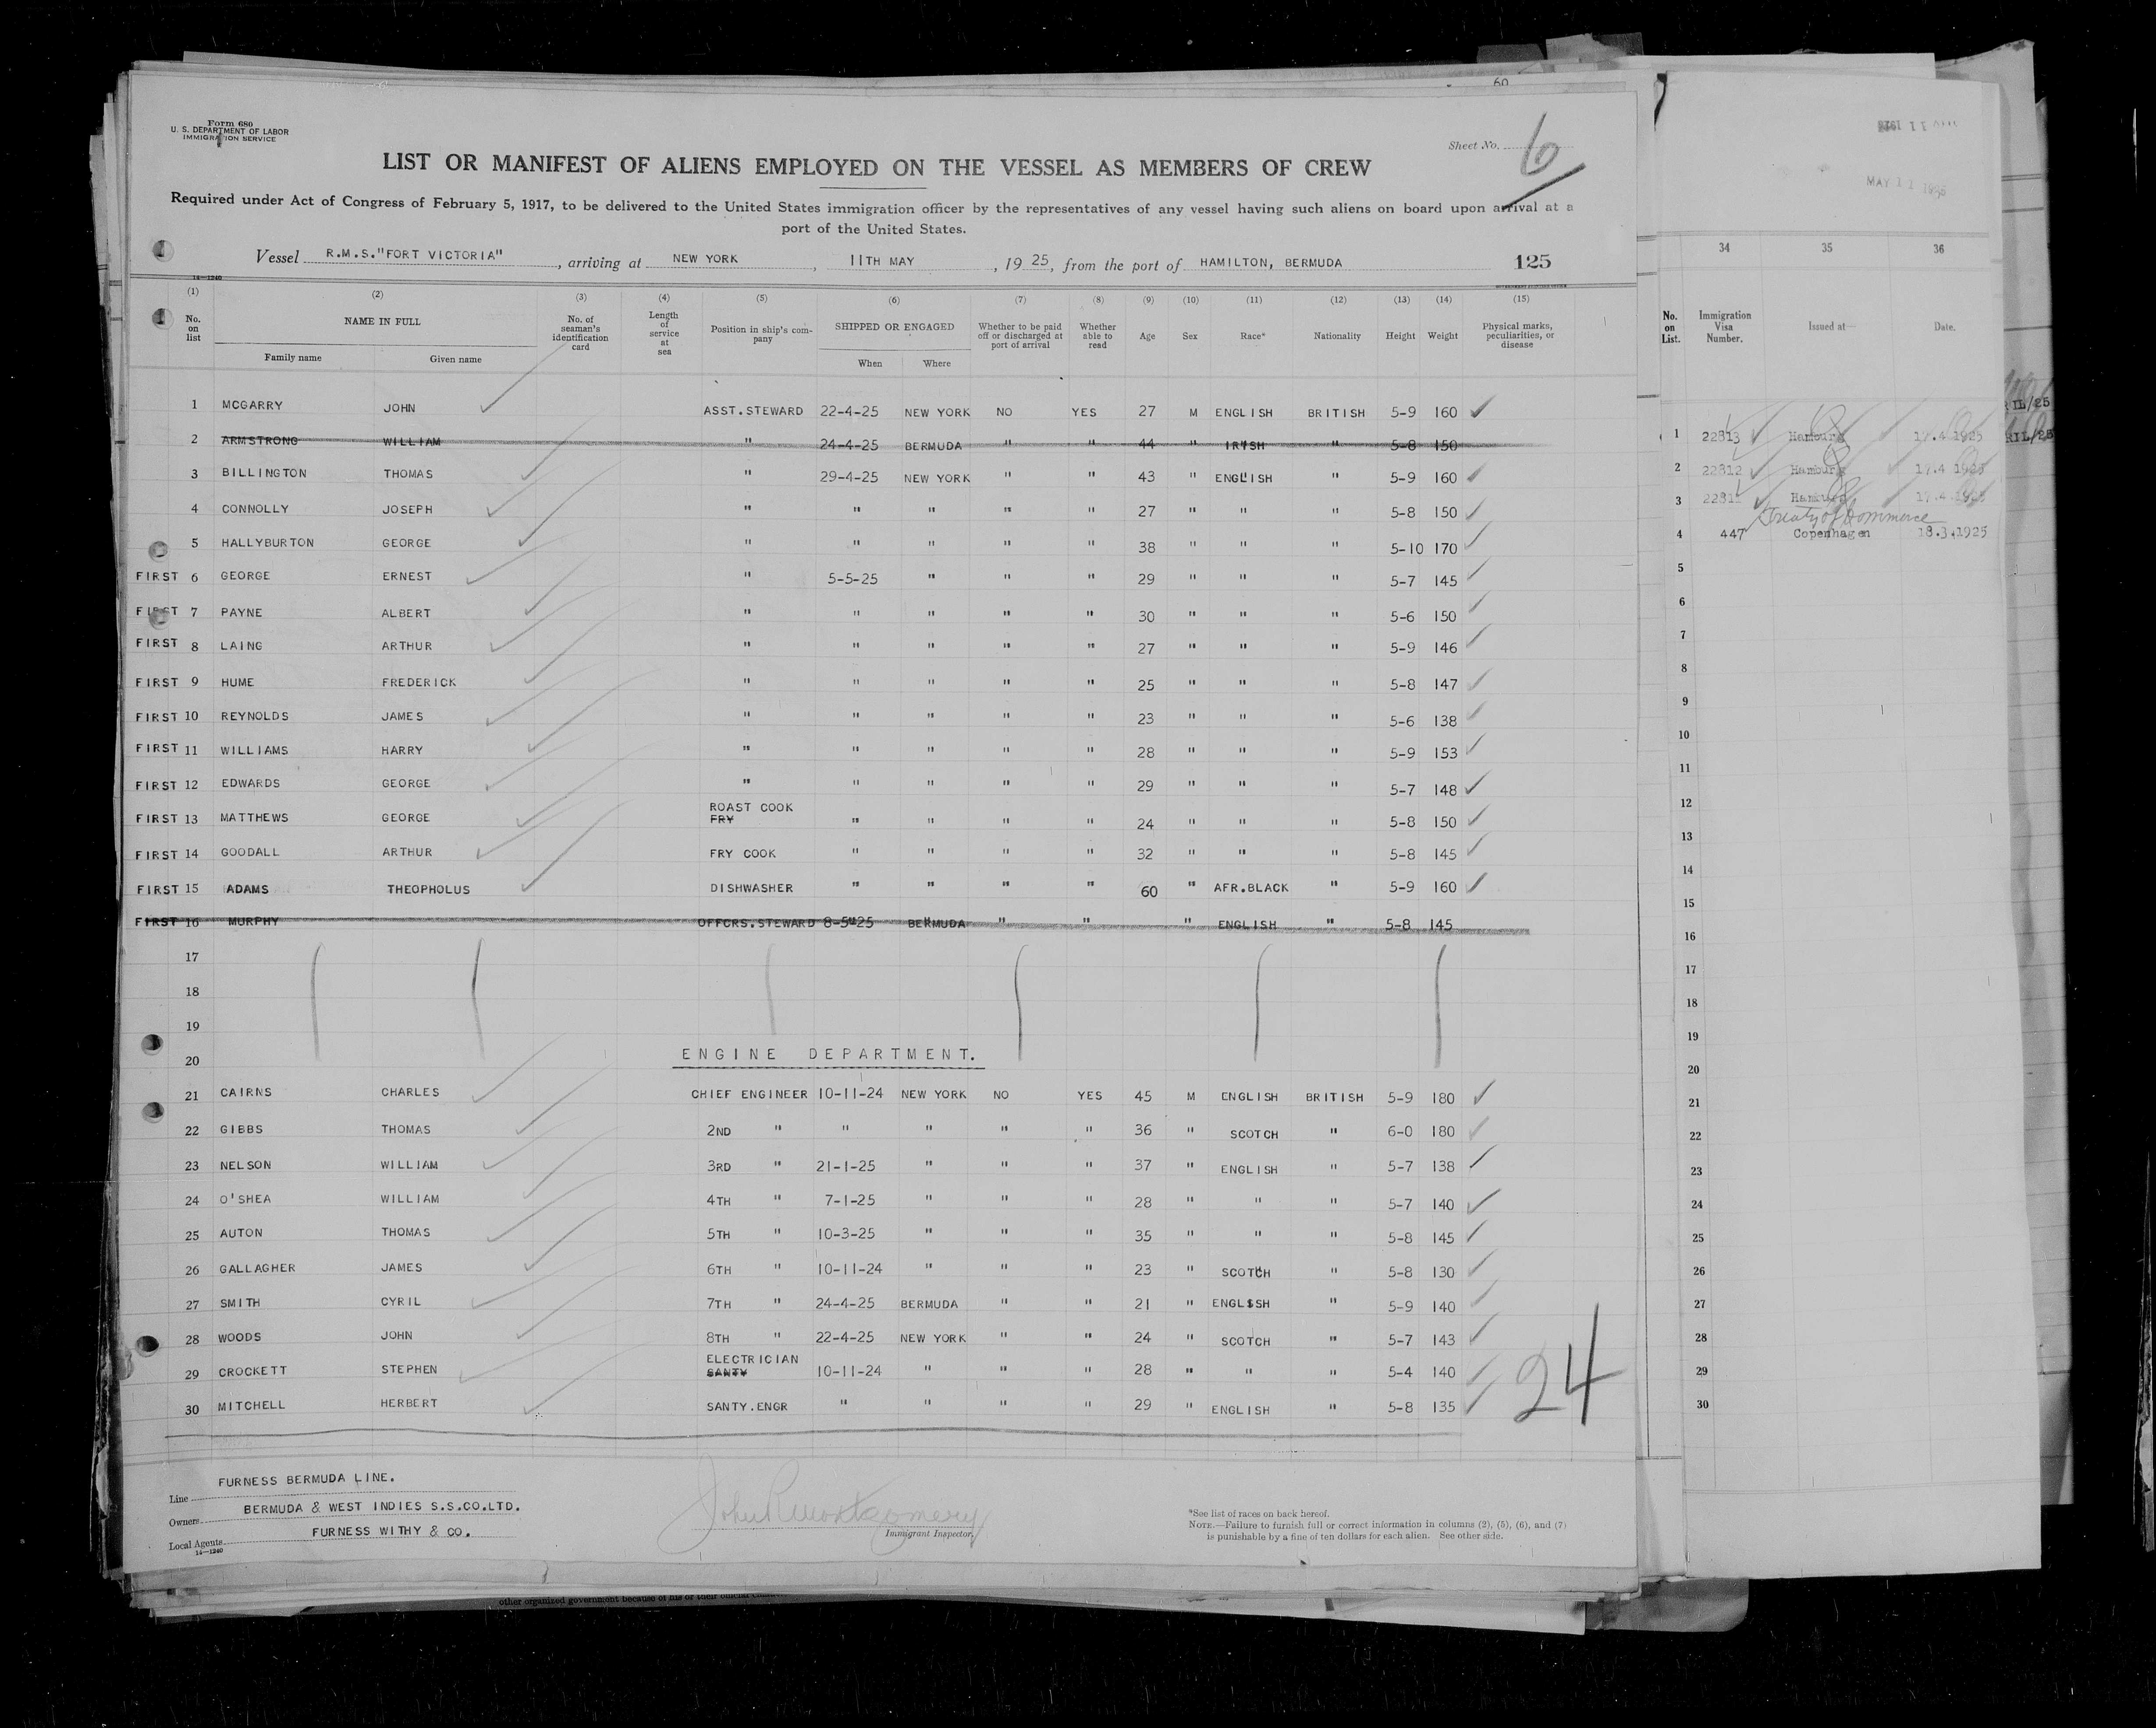 60
Form 680
U. S. DEPARTMENT OF LABOR
IMMIGRATION SERVICE
Sheet No. 6
LIST OR MANIFEST OF ALIENS EMPLOYED ON THE VESSEL AS MEMBERS OF CREW
Required under Act of Congress of February 5, 1917, to be delivered to the United States immigration officer by the representatives of any vessel having such aliens on board upon arrival at a
port of the United States.
Vessel R.M.S."FORT VICTORIA", arriving at NEW YORK, 11TH MAY, 1925, from the port of HAMILTON, BERMUDA 125
14—1240
(1) (2) (3) (4) (5) (6) (7) (8) (9) (10) (11) (12) (13) (14) (15)
No. on list NAME IN FULL No. of seaman's identification card Length of service at sea Position in ship's company SHIPPED OR ENGAGED Whether to be paid off or discharged at port of arrival Whether able to read Age Sex Race* Nationality Height Weight Physical marks, peculiarities, or disease
Family name Given name When Where
1 MCGARRY JOHN ASST.STEWARD 22-4-25 NEW YORK NO YES 27 M ENGLISH BRITISH 5-9 160
2 ARMSTRONG WILLIAM " 24-4-25 BERMUDA " " 44 " IRISH " 5-8 150
3 BILLINGTON THOMAS " 29-4-25 NEW YORK " " 43 " ENGLISH " 5-9 160
4 CONNOLLY JOSEPH " " " " " 27 " " " 5-8 150
5 HALLYBURTON GEORGE " " " " " 38 " " " 5-10 170
FIRST 6 GEORGE ERNEST " 5-5-25 " " " 29 " " " 5-7 145
FIRST 7 PAYNE ALBERT " " " " " 30 " " " 5-6 150
FIRST 8 LAING ARTHUR " " " " " 27 " " " 5-9 146
FIRST 9 HUME FREDERICK " " " " " 25 " " " 5-8 147
FIRST 10 REYNOLDS JAMES " " " " " 23 " " " 5-6 138
FIRST 11 WILLIAMS HARRY " " " " " 28 " " " 5-9 153
FIRST 12 EDWARDS GEORGE " " " " " 29 " " " 5-7 148
ROAST COOK
FIRST 13 MATTHEWS GEORGE FRY " " " " 24 " " " 5-8 150
FIRST 14 GOODALL ARTHUR FRY COOK " " " " 32 " " " 5-8 145
FIRST 15 ADAMS THEOPHOLUS DISHWASHER " " " " 60 " AFR.BLACK " 5-9 160
FIRST 16 MURPHY OFFCRS.STEWARD 8-5-25 BERMUDA " " " ENGLISH " 5-8 145
17
18
19
20 ENGINE DEPARTMENT.
21 CAIRNS CHARLES CHIEF ENGINEER 10-11-24 NEW YORK NO YES 45 M ENGLISH BRITISH 5-9 180
22 GIBBS THOMAS 2ND " " " " " 36 " SCOTCH " 6-0 180
23 NELSON WILLIAM 3RD " 21-1-25 " " " 37 " ENGLISH " 5-7 138
24 O'SHEA WILLIAM 4TH " 7-1-25 " " " 28 " " " 5-7 140
25 AUTON THOMAS 5TH " 10-3-25 " " " 35 " " " 5-8 145
26 GALLAGHER JAMES 6TH " 10-11-24 " " " 23 " SCOTCH " 5-8 130
27 SMITH CYRIL 7TH " 24-4-25 BERMUDA " " 21 " ENGLISH " 5-9 140
28 WOODS JOHN 8TH " 22-4-25 NEW YORK " " 24 " SCOTCH " 5-7 143
ELECTRICIAN
29 CROCKETT STEPHEN SANTY 10-11-24 " " " 28 " " " 5-4 140
30 MITCHELL HERBERT SANTY.ENGR " " " " 29 " ENGLISH " 5-8 135
24
Line FURNESS BERMUDA LINE.
Owners BERMUDA & WEST INDIES S.S.CO.LTD.
Local Agents FURNESS WITHY & CO.
14—1240
John R Montgomery
Immigrant Inspector.
*See list of races on back hereof.
NOTE.—Failure to furnish full or correct information in columns (2), (5), (6), and (7)
is punishable by a fine of ten dollars for each alien. See other side.
other organized government because of his or their official
MAY 11 1925
34 35 36
No. on List. Immigration Visa Number. Issued at— Date.
1 22813 Hamburg 17.4.1925
2 22812 Hamburg 17.4.1925
3 22811 Hamburg 17.4.1925
Treaty of Commerce
4 447 Copenhagen 18.3.1925
5
6
7
8
9
10
11
12
13
14
15
16
17
18
19
20
21
22
23
24
25
26
27
28
29
30
RIL/25
RIL/25